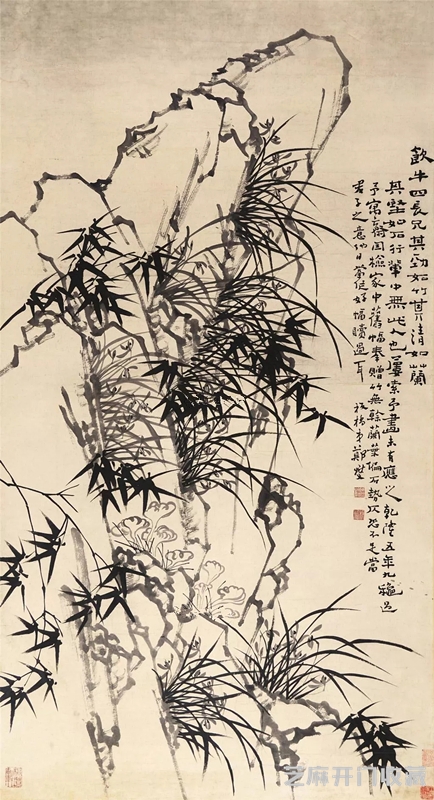 歙牛四長兄其勁如竹其清如蘭
其堅如石行輩中無此人也屢索予畫未有應之乾隆五年九秋過
予寓齋因檢家中舊幅奉贈竹無餘蘭葉偏石勢仄恐不足當
君子之意他日當作好幅贖過耳
板橋弟鄭燮
芝麻开门收藏